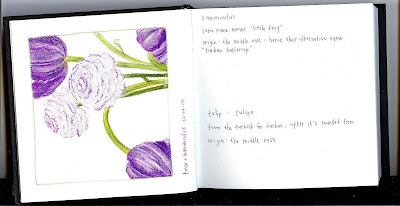 ranunculus
latin name means "little frog"
origin: the middle east - hence their alternative name
"turban buttercup"
tulip = tulipa
from the turkish for turban, after it's rounded form
origin: the middle east
tulip + ranunculus